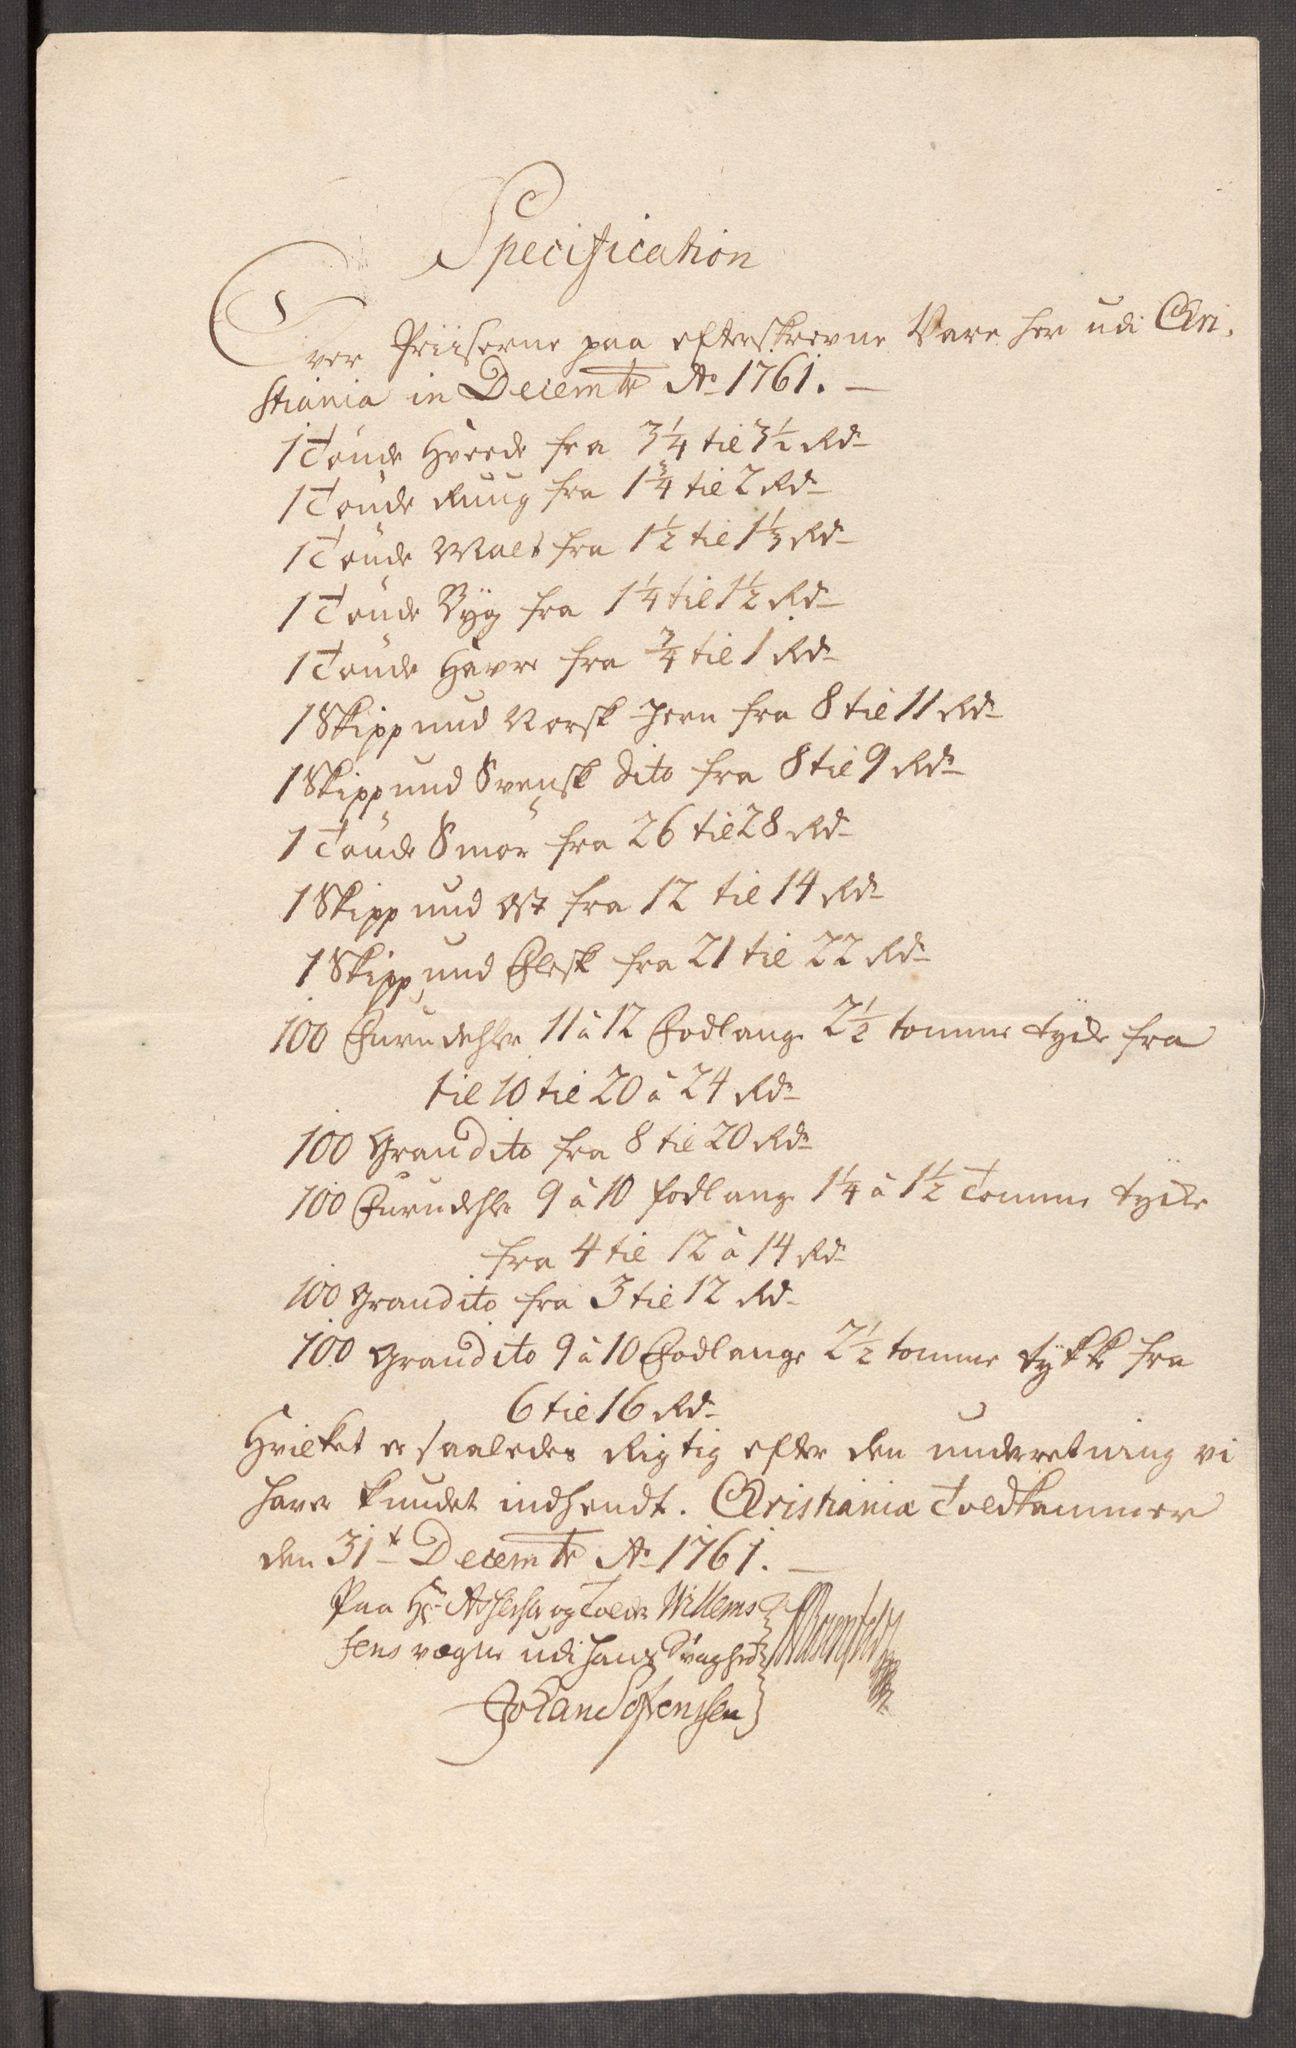 Specification
Over Priiserne paa efterskrevne Vare her udi Chri-
stiania in Decembr Ao 1761. —
1 Tønde Hvede fra 3 1/4 til 3 1/2 Rdr
1 Tønde Ruug fra 1 3/4 til 2 Rdr
1 Tønde Malt fra 1 1/2 til 1 1/3 Rdr
1 Tønde Byg fra 1 1/4 til 1 1/2 Rdr
1 Tønde Havre fra 3/4 til 1 Rdr
1 Skippund Norsk Jern fra 8 til 11 Rdr
1 Skippund Svensk dito fra 8 til 9 Rdr
1 Tønde Smör fra 26 til 28 Rdr
1 Skippund Ost fra 12 til 14 Rdr
1 Skippund Flesk fra 21 til 22 Rdr
100 Furudehler 11 à 12 Fodlange 2 1/2 tomme tycke fra
til 10 til 20 à 24 Rdr
100 Gran dito fra 8 til 20 Rdr
100 Furudehler 9 à 10 fodlange 1 1/4 à 1 1/2 Tomme tycke
fra 4 til 12 à 14 Rdr
100 Gran dito fra 3 til 12 Rdr
100 Gran dito 9 à 10 Fodlange 2 1/2 tomme tykke fra
6 til 16 Rdr
Hvilket er saaledes Rigtig efter den underretning vi
haver kundet indhendt. Christiania Toldkammer
den 31t Decembr Ao 1761. —
Paa Hr og Tolder Willems
sens vegne udi hans Svaghed
Johan Sørenssen